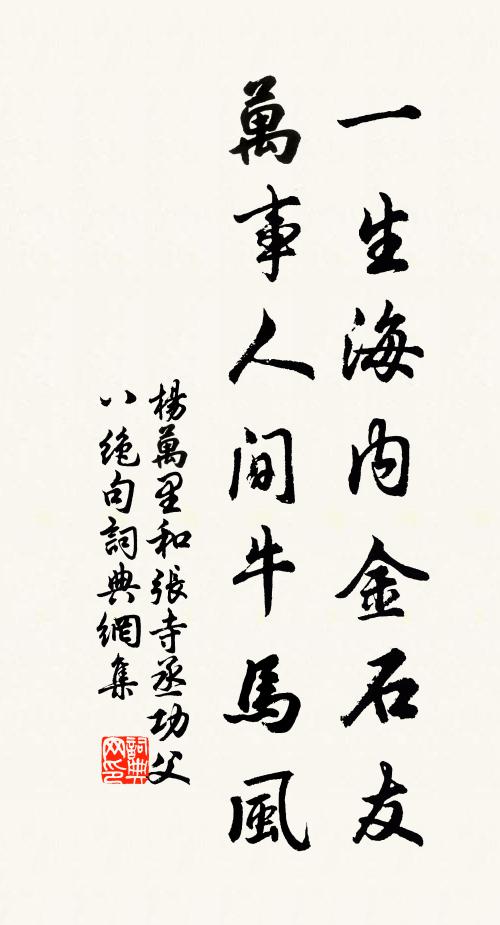 一生海内金石友
萬事人間牛馬風
楊萬里和張寺丞功父
八絕句詞典網集
詞典
网印